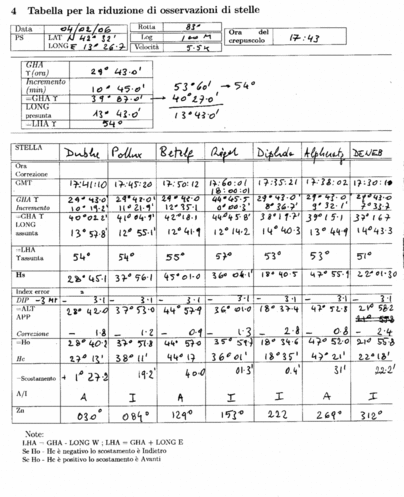 4 Tabella per la riduzione di osservazioni di stelle
Data 04/02/06 Rotta 83° Ora del crepuscolo 17:43
PS LAT N 42° 32' Log 100 M
LONG E 13° 26.7 Velocità 5.5k
GHA ϒ(ora) 29° 43.0'
Incremento (min) 10° 45.0' 53° 60' → 54°
=GHA ϒ 39° 87.0' → 40° 27.0'
LONG presunta 13° 43.0' 13° 43.0'
=LHA ϒ 54°
STELLA Dubhe Pollux Betelg Rigel Diphda Alpheratz DENEB
Ora
Correzione
GMT 17:41:10 17:45:20 17:50:12 17:60:01 17:35:21 17:38:02 17:30:10
18:00:01
GHA ϒ 29° 43.0 29° 43.0' 29° 43.0 44° 45.5 29° 43.0' 29° 43.0' 29° 43.0
Incremento 10° 19.2' 11° 21.9' 12° 35.1 0° 00.3' 8° 36.7' 9° 32.1' 7° 33.7
=GHA ϒ 40° 02.2' 41° 04.9' 42° 18.1 44° 45.8' 38° 19.7' 39° 15.1 37° 16.7
LONG
assunta 13° 57.8' 12° 55.1' 12° 41.9 12° 14.2 14° 40.3 13° 44.9 14° 43.3
=LHA
ϒassunta 54° 54° 55° 57° 53° 53° 51°
Hs 28° 45.1 37° 56.1 45° 01.0 36° 04.1' 18° 40.5 47° 55.9 22° 01.30
Index error
DIP -3 MT - 3.1 - 3.1 - 3.1 - 3.1 - 3.1 - 3.1 - 3.1
=ALT APP 28° 42.0 37° 53.0 44° 57.9 36° 01.0 18° 37.4 47° 52.8 21° 58.2
Correzione - 1.8 - 1.2 - 0.9 - 1.3 - 2.8 - 0.8 - 2.4
=Ho 28° 40.2 37° 51.8 44° 57.0 35° 59.7 18° 34.6 47° 52.0 21° 55.8
Hc 27° 13' 38° 11' 44° 17 36° 01' 18° 35' 47° 21' 22° 18'
=Scostamento + 1° 27.2 19.2' 40.0 01.3' 0.4' 31' 22.2'
A/I A I A I I A I
Zn 030° 084° 129° 153° 222 269° 312°
Note:
LHA = GHA - LONG W ; LHA = GHA + LONG E
Se Ho - Hc è negativo lo scostamento è Indietro
Se Ho - Hc è positivo lo scostamento è Avanti